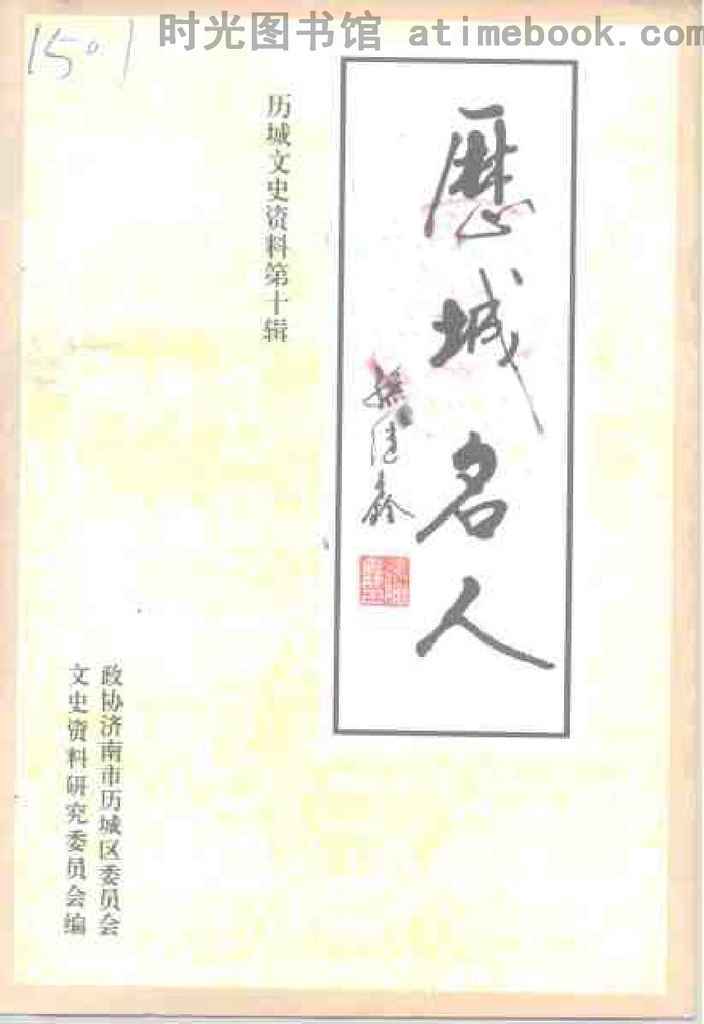 时光图书馆 atimebook.com
150.1
历城名人
历城文史资料第十辑
政协济南市历城区委员会
文史资料研究委员会编